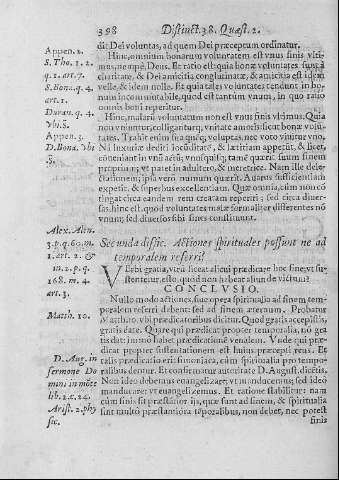 398 Distinct. 38. Quæst. 2.
dit Dei voluntas, ad quem Dei præceptum ordinatur.
Appen. 2.
S. Tho. 1. 2.
q. 1. ar. 7.
S. Bona. q. 4.
art. 1.
Duran. q. 4.
Vbi S.
Appen. 3.
D. Bona. Vbi
S.
Hinc, omnium bonarum voluntatem est vnus finis vlti-
mus, nempè, Deus. Et ratio est: quia bonæ voluntates sunt à
charitate, & Dei amicitia conglutinatæ, & amicitia est idem
velle, & idem nolle. Et quia tales voluntates tendunt in bo-
num incommutabile, quod est tantùm vnum, in quo ratio
omnium
Hinc, malarū voluntatum non est vnus finis vltimus. Quia
non vniuntur, colliganturq́; vnitate
res. Trahit enim sua quēq; voluptas, nec voto viuitur vno.
Nā luxuriæ dediti & lætitiam appetūt, & licet,
conueniant in vnū actū; vnusquisq; tamē quærit suum finem
proprium; vt patet in adultero, & meretrice. Nam ille dele-
ctationem; ipsa verò nummū quærit. Auarus sufficientiam
expetit, & superbus excellentiam. Quæ omnia, cùm non cō
tingat circa eandem rem creatam reperiri; sed circa diuer-
sas, hinc est, quòd voluntates malæ formaliter differentes nō
vnum; sed diuersos sibi fines constituunt.
Alex. Alen.
3. p. q. 60. m.
1. art. 2. &
in. 2. p. q.
168. m. 4.
art. 3.
Matth. 10.
D. Aug. in
sermone Do
mini in mōte
lib. 2. c. 24.
Arist. 2. phy
sic.
Secunda diffic. Actiones spirituales possunt ne ad
temporalem referri?
VErbi gratia, vtrù liceat alicui prædicare hoc fine, vt su-
stentetur, esto, quòd non habeat aliunde victum?
CONCLVSIO.
Nullo modo actiones, siue opera spiritualia ad finem tem-
poralem referri debent: sed ad finem æternum. Probatur
Matthæo, vbi prædicatoribus dicitur. Quod gratis accepistis,
gratis date. Quare qui prædicat propter temporalia, nō gra
tis dat: immò habet prædicationē venalem. Vnde qui præ-
dicat propter sustentationem est huius præcepti reus. Et
talis prædicatio erit simoniaca, cùm spiritualia pro tempo-
ralibus dentur. Et confirmatur autoritate D. August. dicētis.
Non ideo debemus euangelizare; vt manducemus; sed ideo
manducare: vt euangelizemus. Et ratione stabilitur: nam
cùm finis sit præstātior ijs, quæ sunt ad finem, & spiritualia
sint multò præstantiora tēporalibus, non debet, nec potest
finis